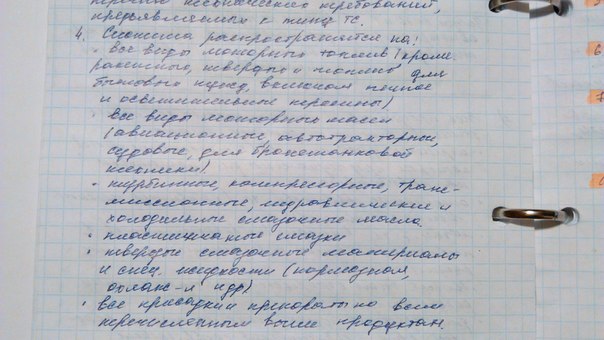 перечня технических требований,
предъявляемых к типу ТС.
4. Система распространяется на:
• все виды моторных топлив (кроме
ракетного, твердых и топлив для
бытовых нужд, включая печное
и осветительные керосины)
• все виды моторных масел
(авиационные, автотракторные,
судовые, для бронетанковой
техники)
• турбинные, компрессорные, транс-
миссионные, гидравлические и
холодильные смазочные масла.
• пластичные смазки
• твердые смазочные материалы
и спец. жидкости (тормозная,
охлажд-я и др)
• все присадки и препараты ко всем
перечисленным выше продуктам.
6
7